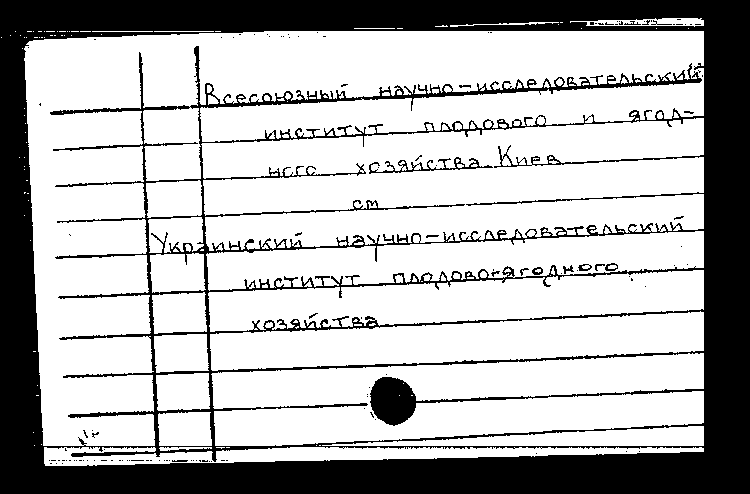 Всесоюзный научно-исследовательский
институт плодового и ягод-
ного хозяйства. Киев
см
Украинский научно-исследовательский
институт плодово-ягодного
хозяйства